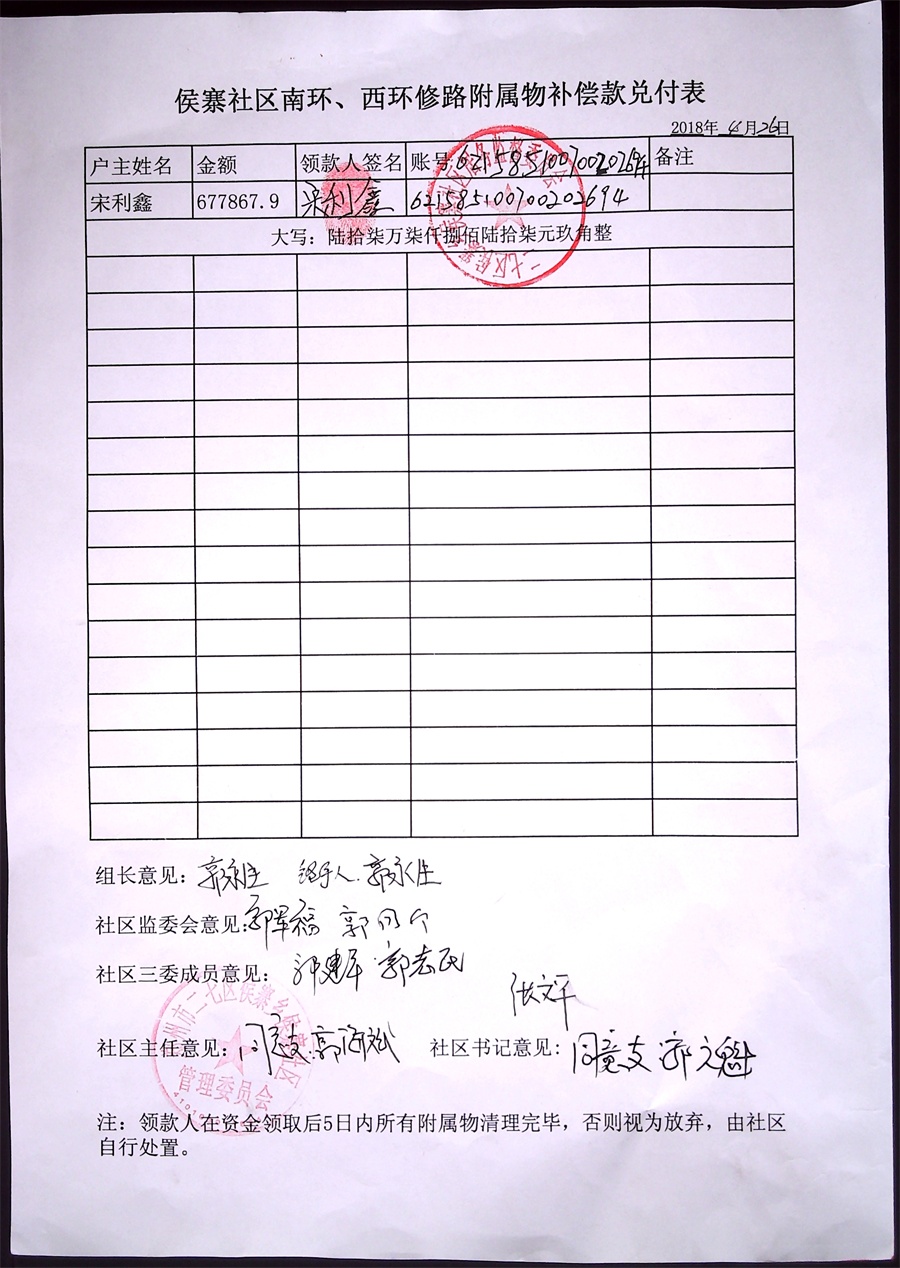 侯寨社区南环、西环修路附属物补偿款兑付表
2018年4月26日
户主姓名 金额 领款人签名 账号:621585100700202694 备注
宋利鑫 677867.9 宋利鑫 621585100700202694
大写：陆拾柒万柒仟捌佰陆拾柒元玖角整
组长意见：郭永生 经手人：郭永生
社区监委会意见：郭军福 郭同个
社区三委成员意见：郭建军 郭志民
社区主任意见：同意支 郭海斌 社区书记意见：同意支 郭文魁
管理委员会
注：领款人在资金领取后5日内所有附属物清理完毕，否则视为放弃，由社区
自行处置。